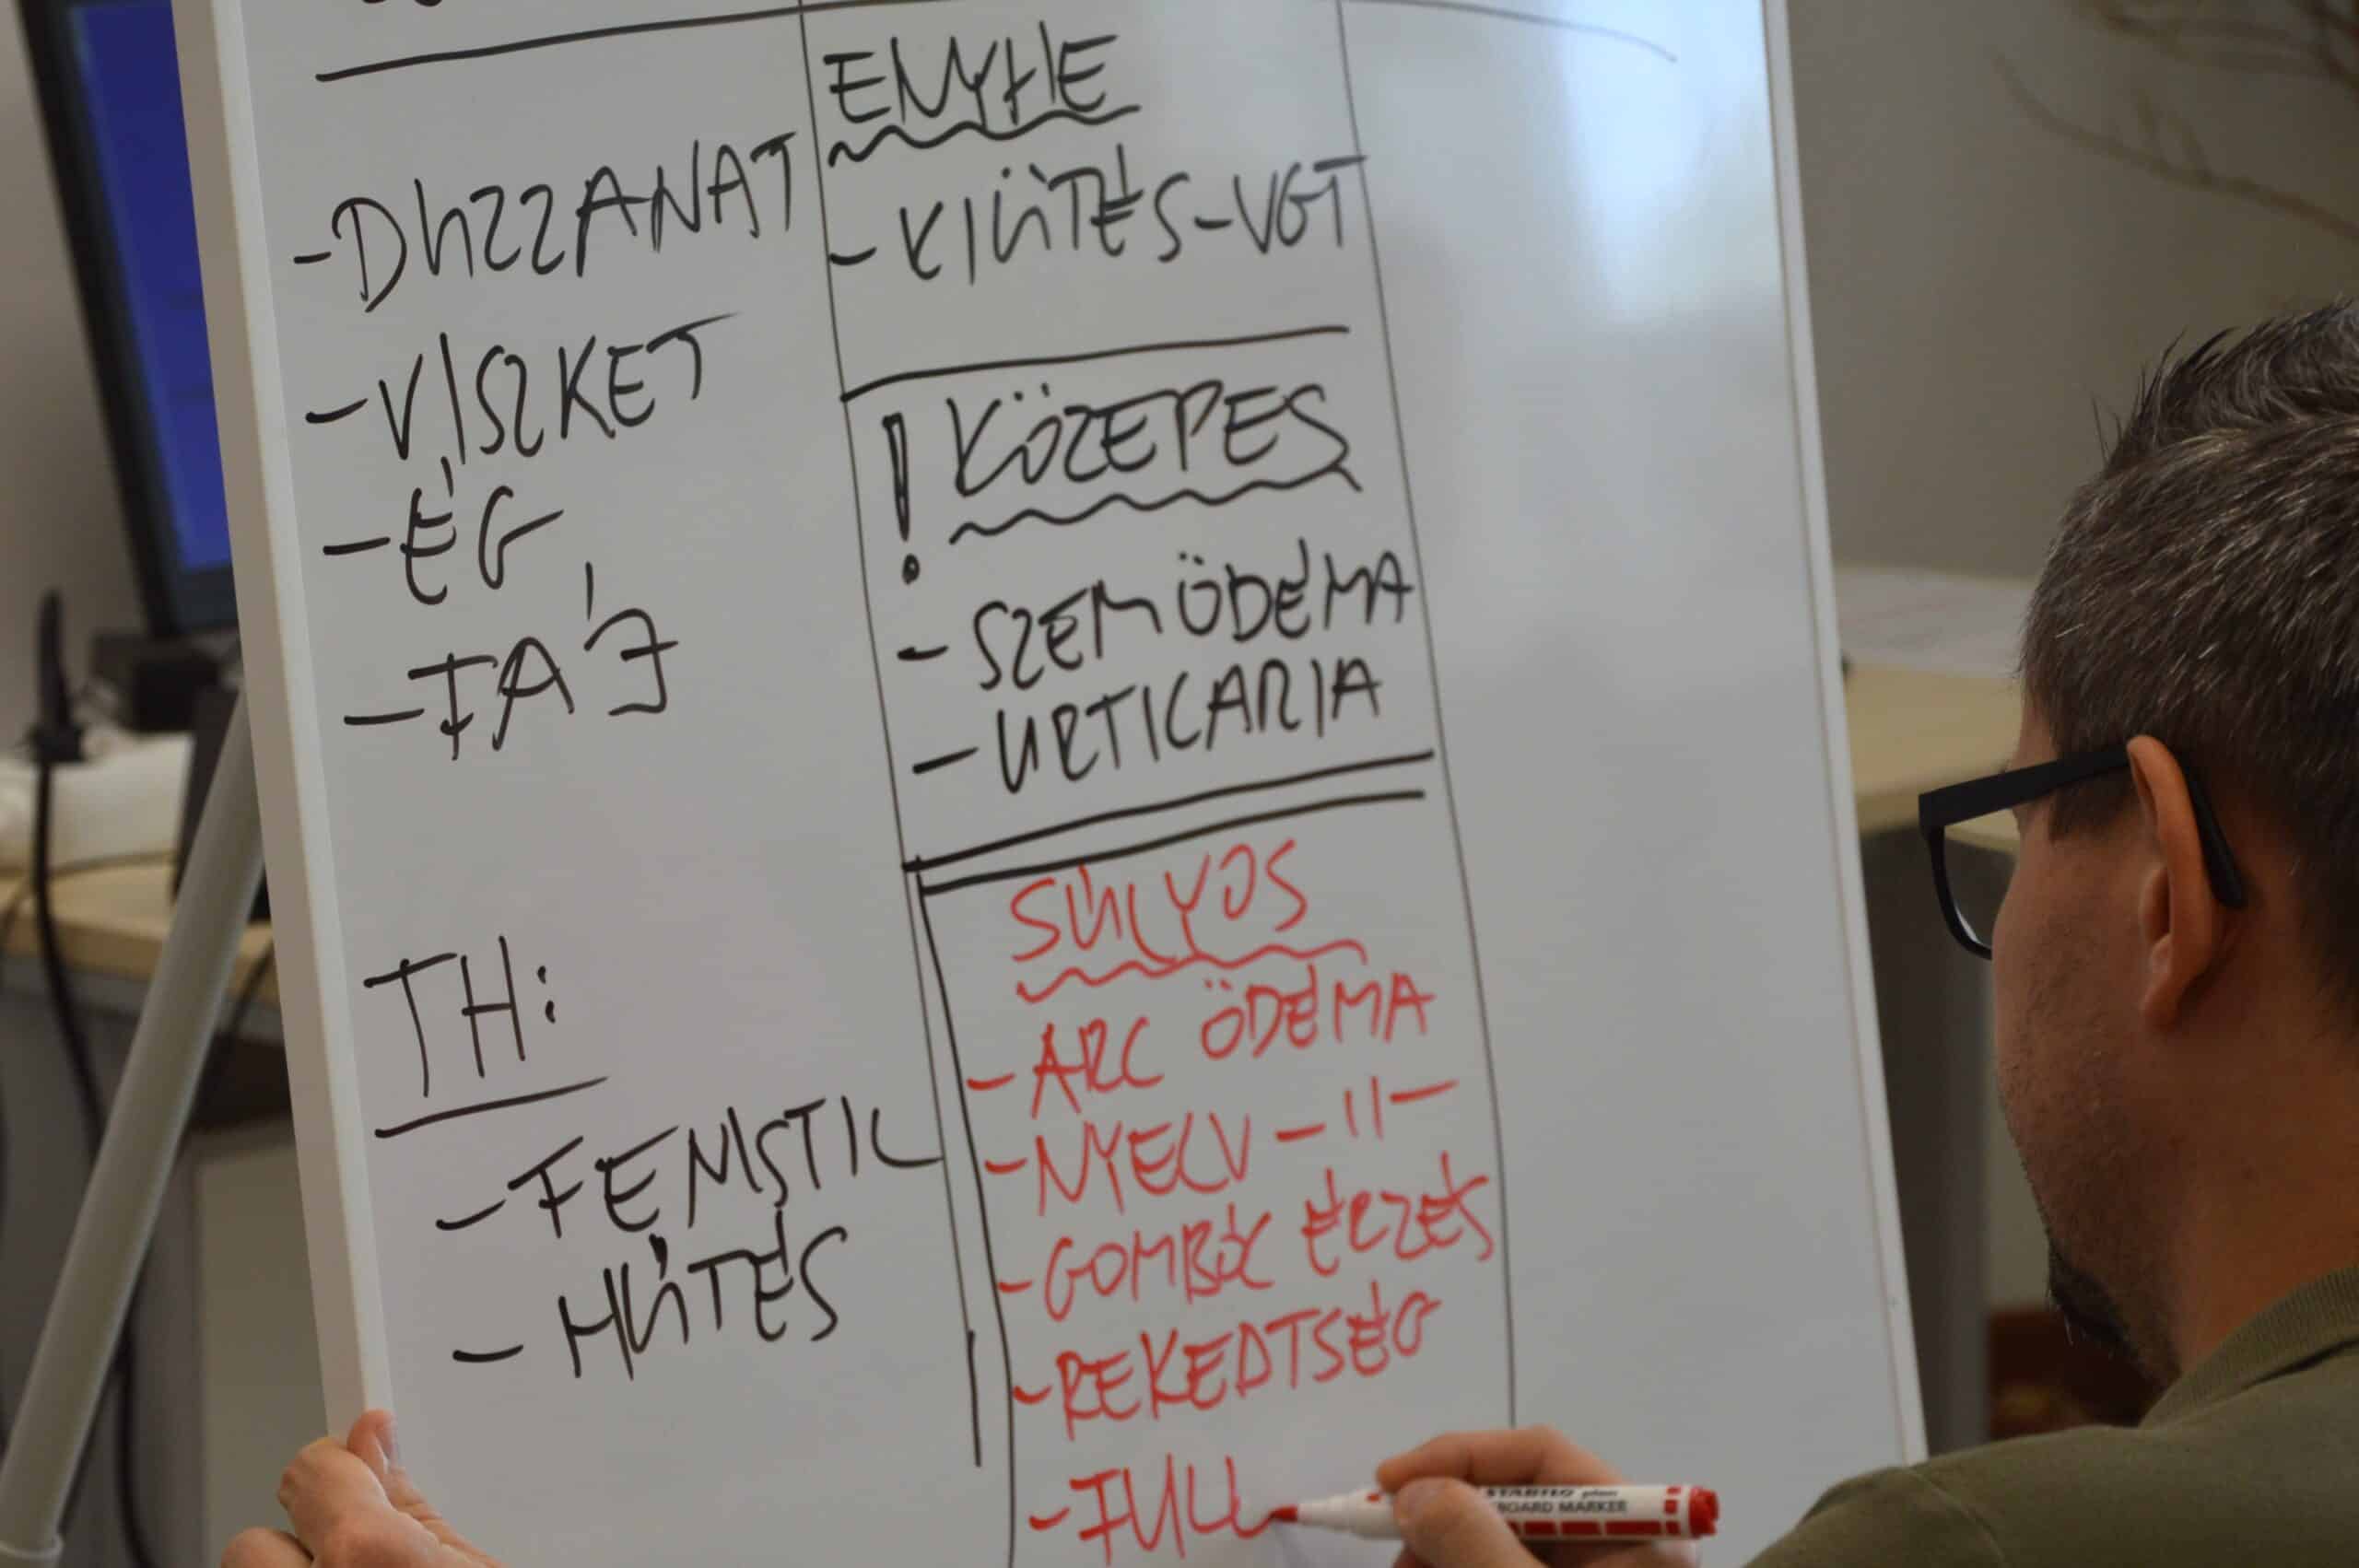 -DUZZANAT
-VISZKET
-ÉG
-FÁJ
TH:
-FENISTIL
-HŰTÉS
ENYHE
-KIÜTÉS-VGT
! KÖZEPES
-SZEM ÖDÉMA
-URTICARIA
SÚLYOS
-ARC ÖDÉMA
-NYELV -11-
-GOMBÓC ÉRZÉS
-REKEDTSÉG
-FULL
STABILO plan
BOARD MARKER